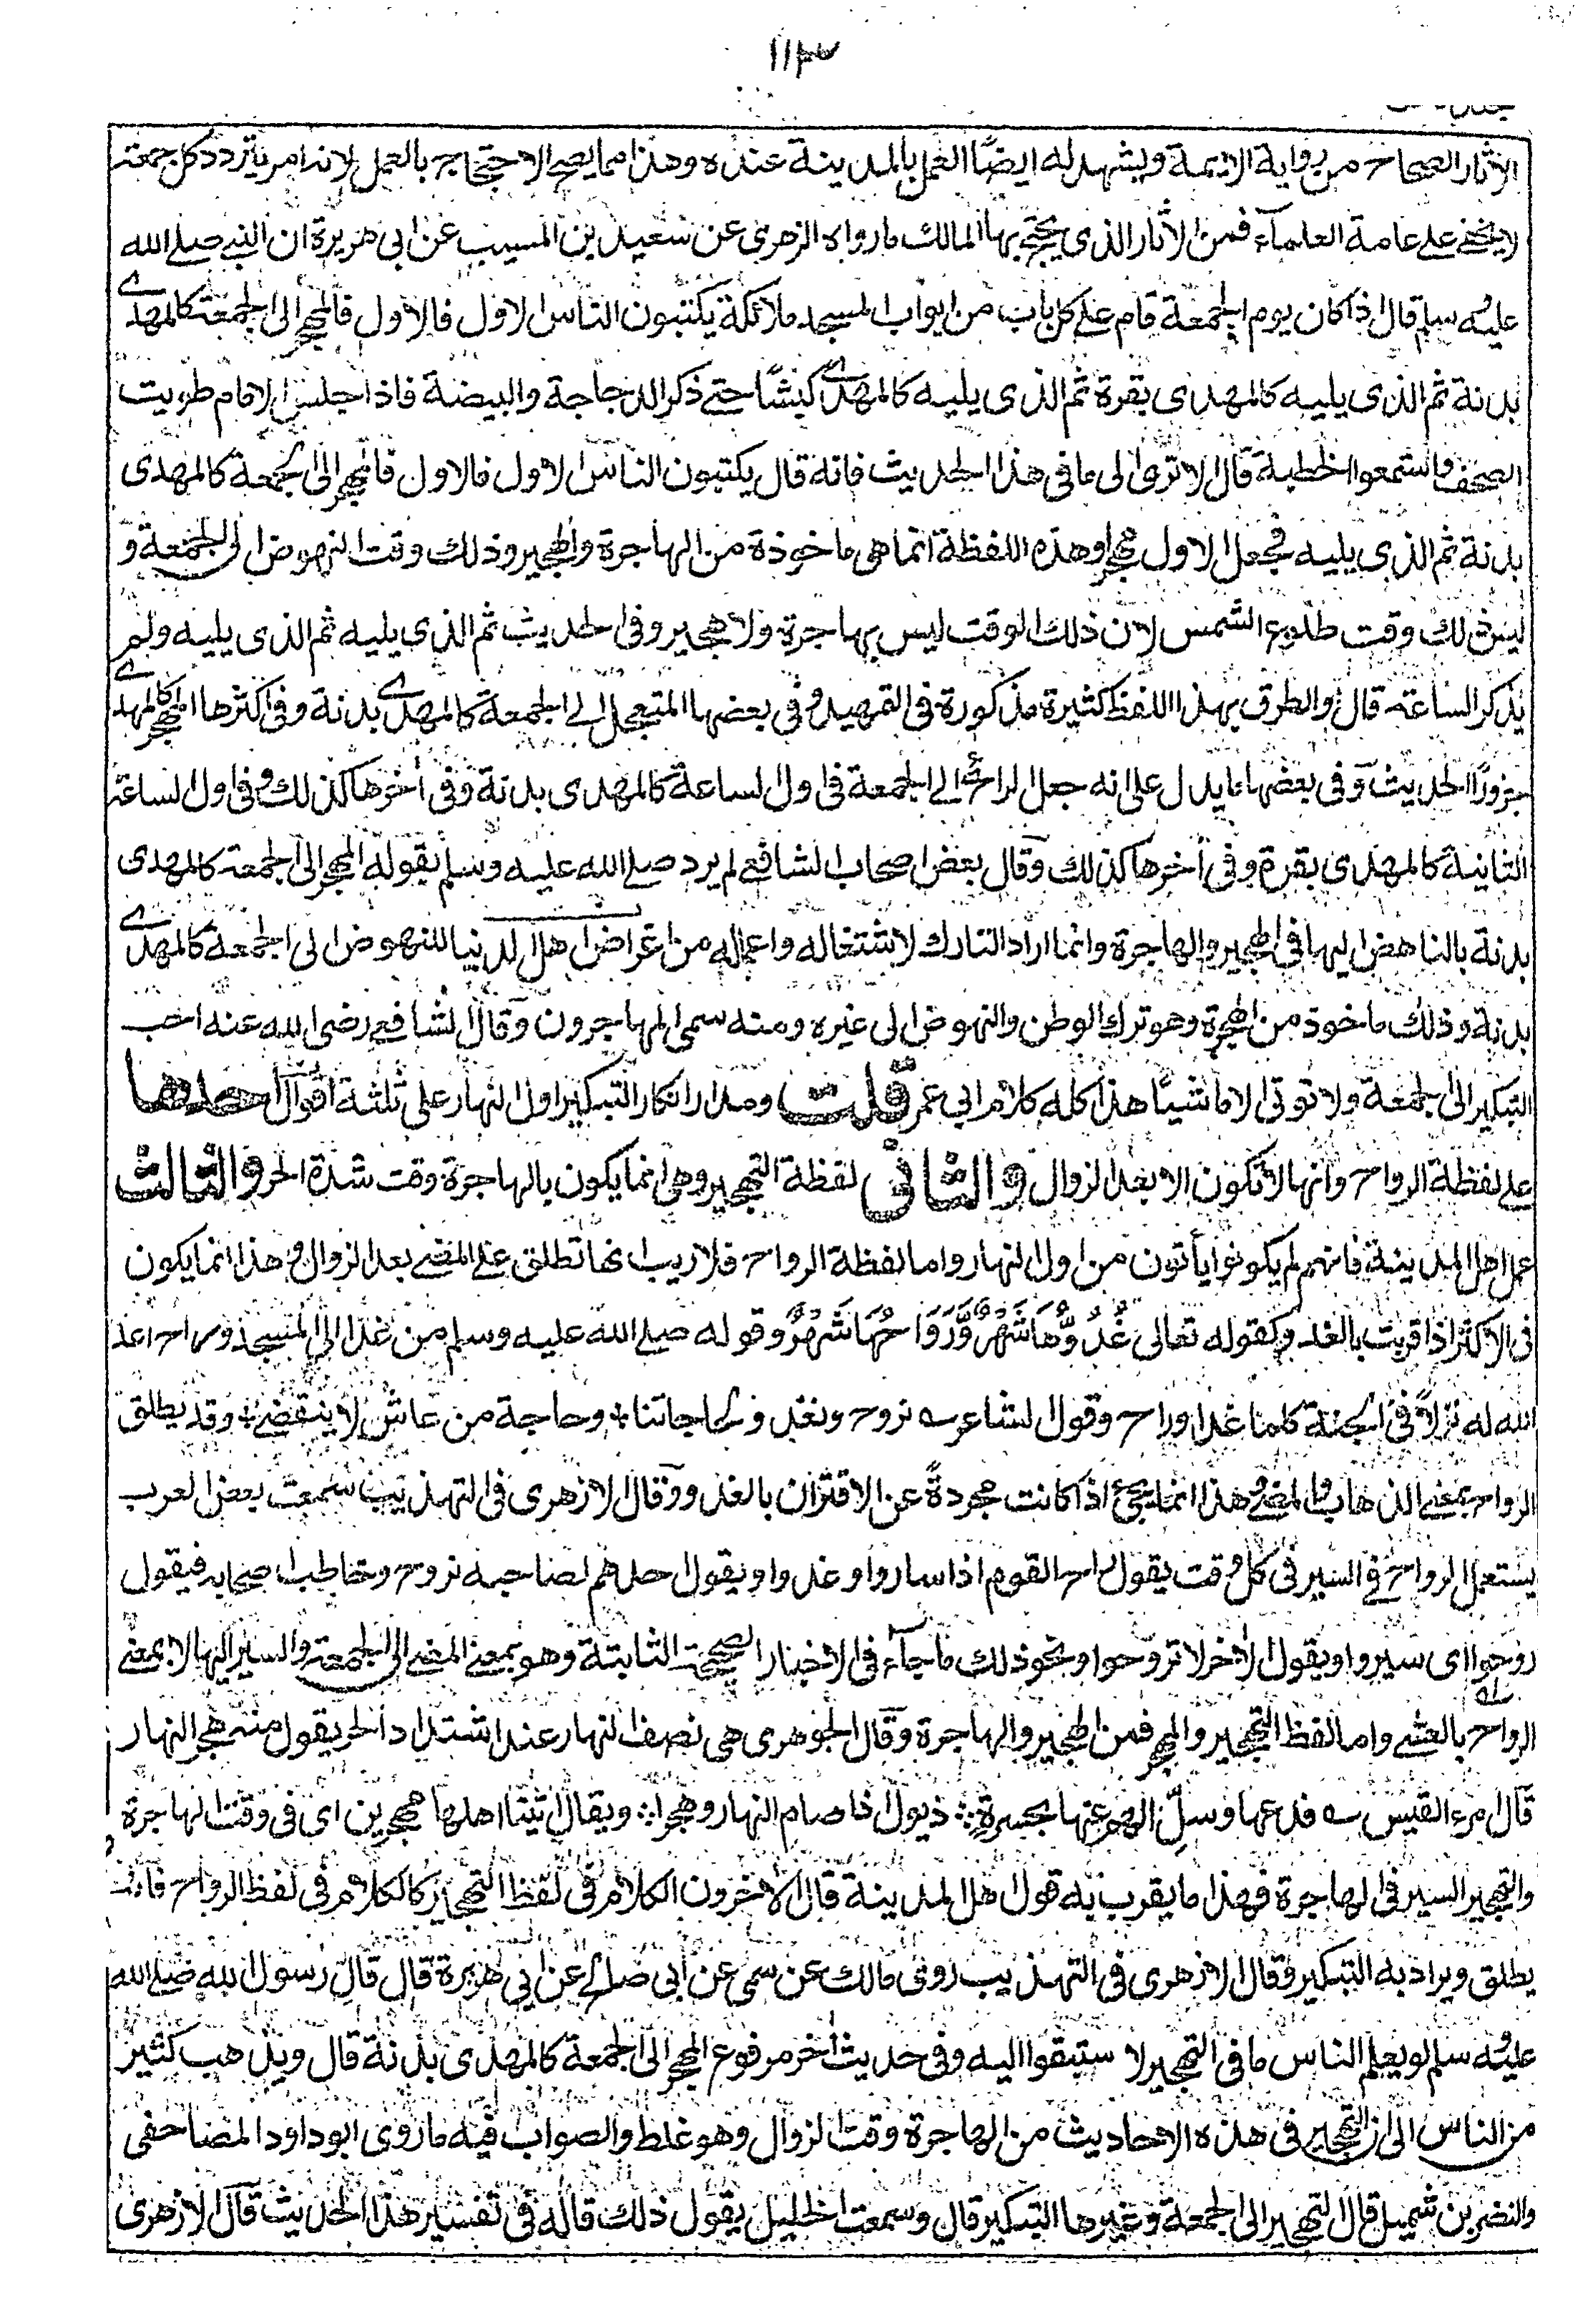 ١١٣
الآثار الصحاح من رواية الائمة ويشهد له ايضًا العمل بالمدينة عنده وهذا مما يصح الاحتجاج بالعمل لانه امر يتردد كل جمعة
لا يخفى على عامة العلمآء فمن الآثار الذى يحتج بها المالك ما رواه الزهرى عن سعيد بن المسيب عن ابى هريرة ان النبى صلى الله
عليه وسلم قال اذا كان يوم الجمعة قام على كل باب من ابواب المسجد ملائكة يكتبون الناس الاول فالاول فالمهجر الى الجمعة كالمهدى
بدنة ثم الذى يليه كالمهدى بقرة ثم الذى يليه كالمهدى كبشًا حتى ذكر الدجاجة والبيضة فاذا جلس الامام طويت
الصحف واستمعوا الخطبة قال الا ترى الى ما فى هذا الحديث فانه قال يكتبون الناس الاول فالاول فالمهجر الى الجمعة كالمهدى
بدنة ثم الذى يليه فجعل الاول مهجرا وهذه اللفظة انما هى ماخوذة من الهاجرة والهجير وذلك وقت النهوض الى الجمعة و
ليس ذلك وقت طلوع الشمس لان ذلك الوقت ليس بهاجرة ولا هجير وفى الحديث ثم الذى يليه ثم الذى يليه ولم
يذكر الساعة قال والطرق بهذا اللفظ كثيرة مذكورة فى التمهيد وفى بعضها المتعجل الى الجمعة كالمهدى بدنة وفى اكثرها المهجر كالمهدى
جزورًا الحديث وفى بعضها ما يدل على انه جعل الرائح الى الجمعة فى اول الساعة كالمهدى بدنة وفى آخرها كذلك وفى اول الساعة
الثانية كالمهدى بقرة وفى آخرها كذلك وقال بعض اصحاب الشافعى لم يرد صلى الله عليه وسلم بقوله المهجر الى الجمعة كالمهدى
بدنة بالناهض اليها فى الهجير والهاجرة وانما اراد التارك لاشتغاله واعماله من اغراض اهل الدنيا للنهوض الى الجمعة كالمهدى
بدنة وذلك ماخوذ من الهجرة وهو ترك الوطن والنهوض الى غيره ومنه سمى المهاجرون وقال الشافعى رضى الله عنه احب
التبكير الى الجمعة ولا توتى الا ماشيًا هذا كله كلام ابى عمر قلت ومدار انكار التبكير اول النهار على ثلثة اقوال احدها
على لفظة الرواح وانها لا تكون الا بعد الزوال والثانى لفظة التهجير وهى انما يكون بالهاجرة وقت شدة الحر والثالث
عمل اهل المدينة فانهم لم يكونوا يأتون من اول النهار واما لفظة الرواح فلا ريب انها تطلق على المضى بعد الزوال وهذا انما يكون
فى الاكثر اذا قرنت بالغدو كقوله تعالى غُدُوُّهَا شَهْرٌ وَّرَوَاحُهَا شَهْرٌ وقوله صلى الله عليه وسلم من غدا الى المسجد وراح اعد
الله له نزلاً فى الجنة كلما غدا وراح وقول الشاعر نروح ونغدو لحاجاتنا وحاجة من عاش لا ينقضى وقد يطلق
الرواح بمعنى الذهاب والمضى وهذا انما يجئ اذا كانت مجردةً عن الاقتران بالغدو وقال الازهرى فى التهذيب سمعت بعض العرب
يستعمل الرواح فى السير فى كل وقت يقول راح القوم اذا ساروا وغدوا ويقول احدهم لصاحبه نروح وخاطب اصحابه فيقول
روحوا اى سيروا ويقول الآخر لا تروحوا ونحو ذلك ما جآء فى الاخبار الصحيحة الثابتة وهو بمعنى المضى الى الجمعة والسير اليها لا بمعنى
الرواح بالعشى واما لفظ التهجير والمهجر فمن الهجير والهاجرة وقال الجوهرى هى نصف النهار عند اشتداد الحر يقول منه هجر النهار
قال امرء القيس فدعها وسلّ الهم عنها بجسرة ذمول اذا صام النهار وهجرا ويقال اتينا اهلها مهجرين اى فى وقت الهاجرة
والتهجير السير فى الهاجرة فهذا ما يقرب به قول اهل المدينة قال الآخرون الكلام فى لفظ التهجير كالكلام فى لفظ الرواح فانه
يطلق ويراد به التبكير وقال الازهرى فى التهذيب روى مالك عن سمى عن ابى صالح عن ابى هريرة قال قال رسول الله صلى الله
عليه وسلم لو يعلم الناس ما فى التهجير لاستبقوا اليه وفى حديث آخر مرفوع المهجر الى الجمعة كالمهدى بدنة قال ويذهب كثير
من الناس الى ان التهجير فى هذه الاحاديث من الهاجرة وقت الزوال وهو غلط والصواب فيه ما روى ابو داود المصاحفى
والنضر بن شميل قال التهجير الى الجمعة وغيرها التبكير قال وسمعت الخليل يقول ذلك قاله فى تفسير هذا الحديث قال الازهرى